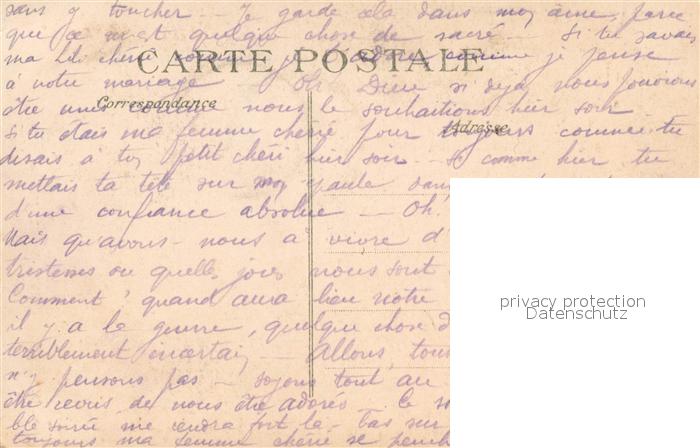 sans y toucher - Je garde cela dans mon âme, parce
que ce m'est quelque chose de sacré - Si tu savais
ma Lili chérie comme je t'adore comme je pense
CARTE POSTALE
à notre mariage Oh! Dieu si déjà nous pouvions
être unis comme nous le souhaitions hier soir
Correspondance
si tu étais ma femme chérie pour toujours comme tu
Adresse
disais à ton petit chéri hier soir - si comme hier tu
mettais ta tête sur mon épaule dans
d'une confiance absolue - Oh.
Mais qu'avons-nous à vivre d'
tristesses ou quelles joies nous sont
Comment? quand aura lieu notre
il y a la guerre, quelque chose d
terriblement incertain - Allons, tous
n'y pensons pas - soyons tout au
être revis, de nous être adorés - Ce so
ble soirée me rendra fort là-bas sur
toujours ma femme chérie se pench
privacy protection
Datenschutz